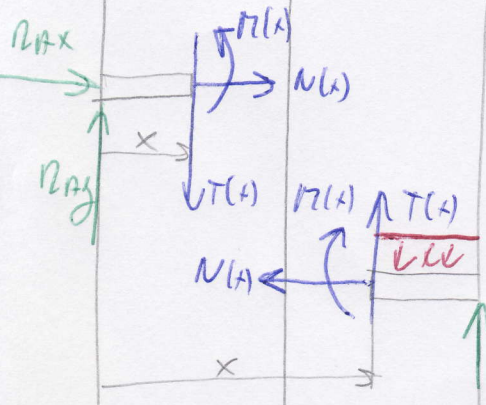 RAx
M(x)
N(x)
x
RAy
T(x)
M(x)
T(x)
N(x)
x